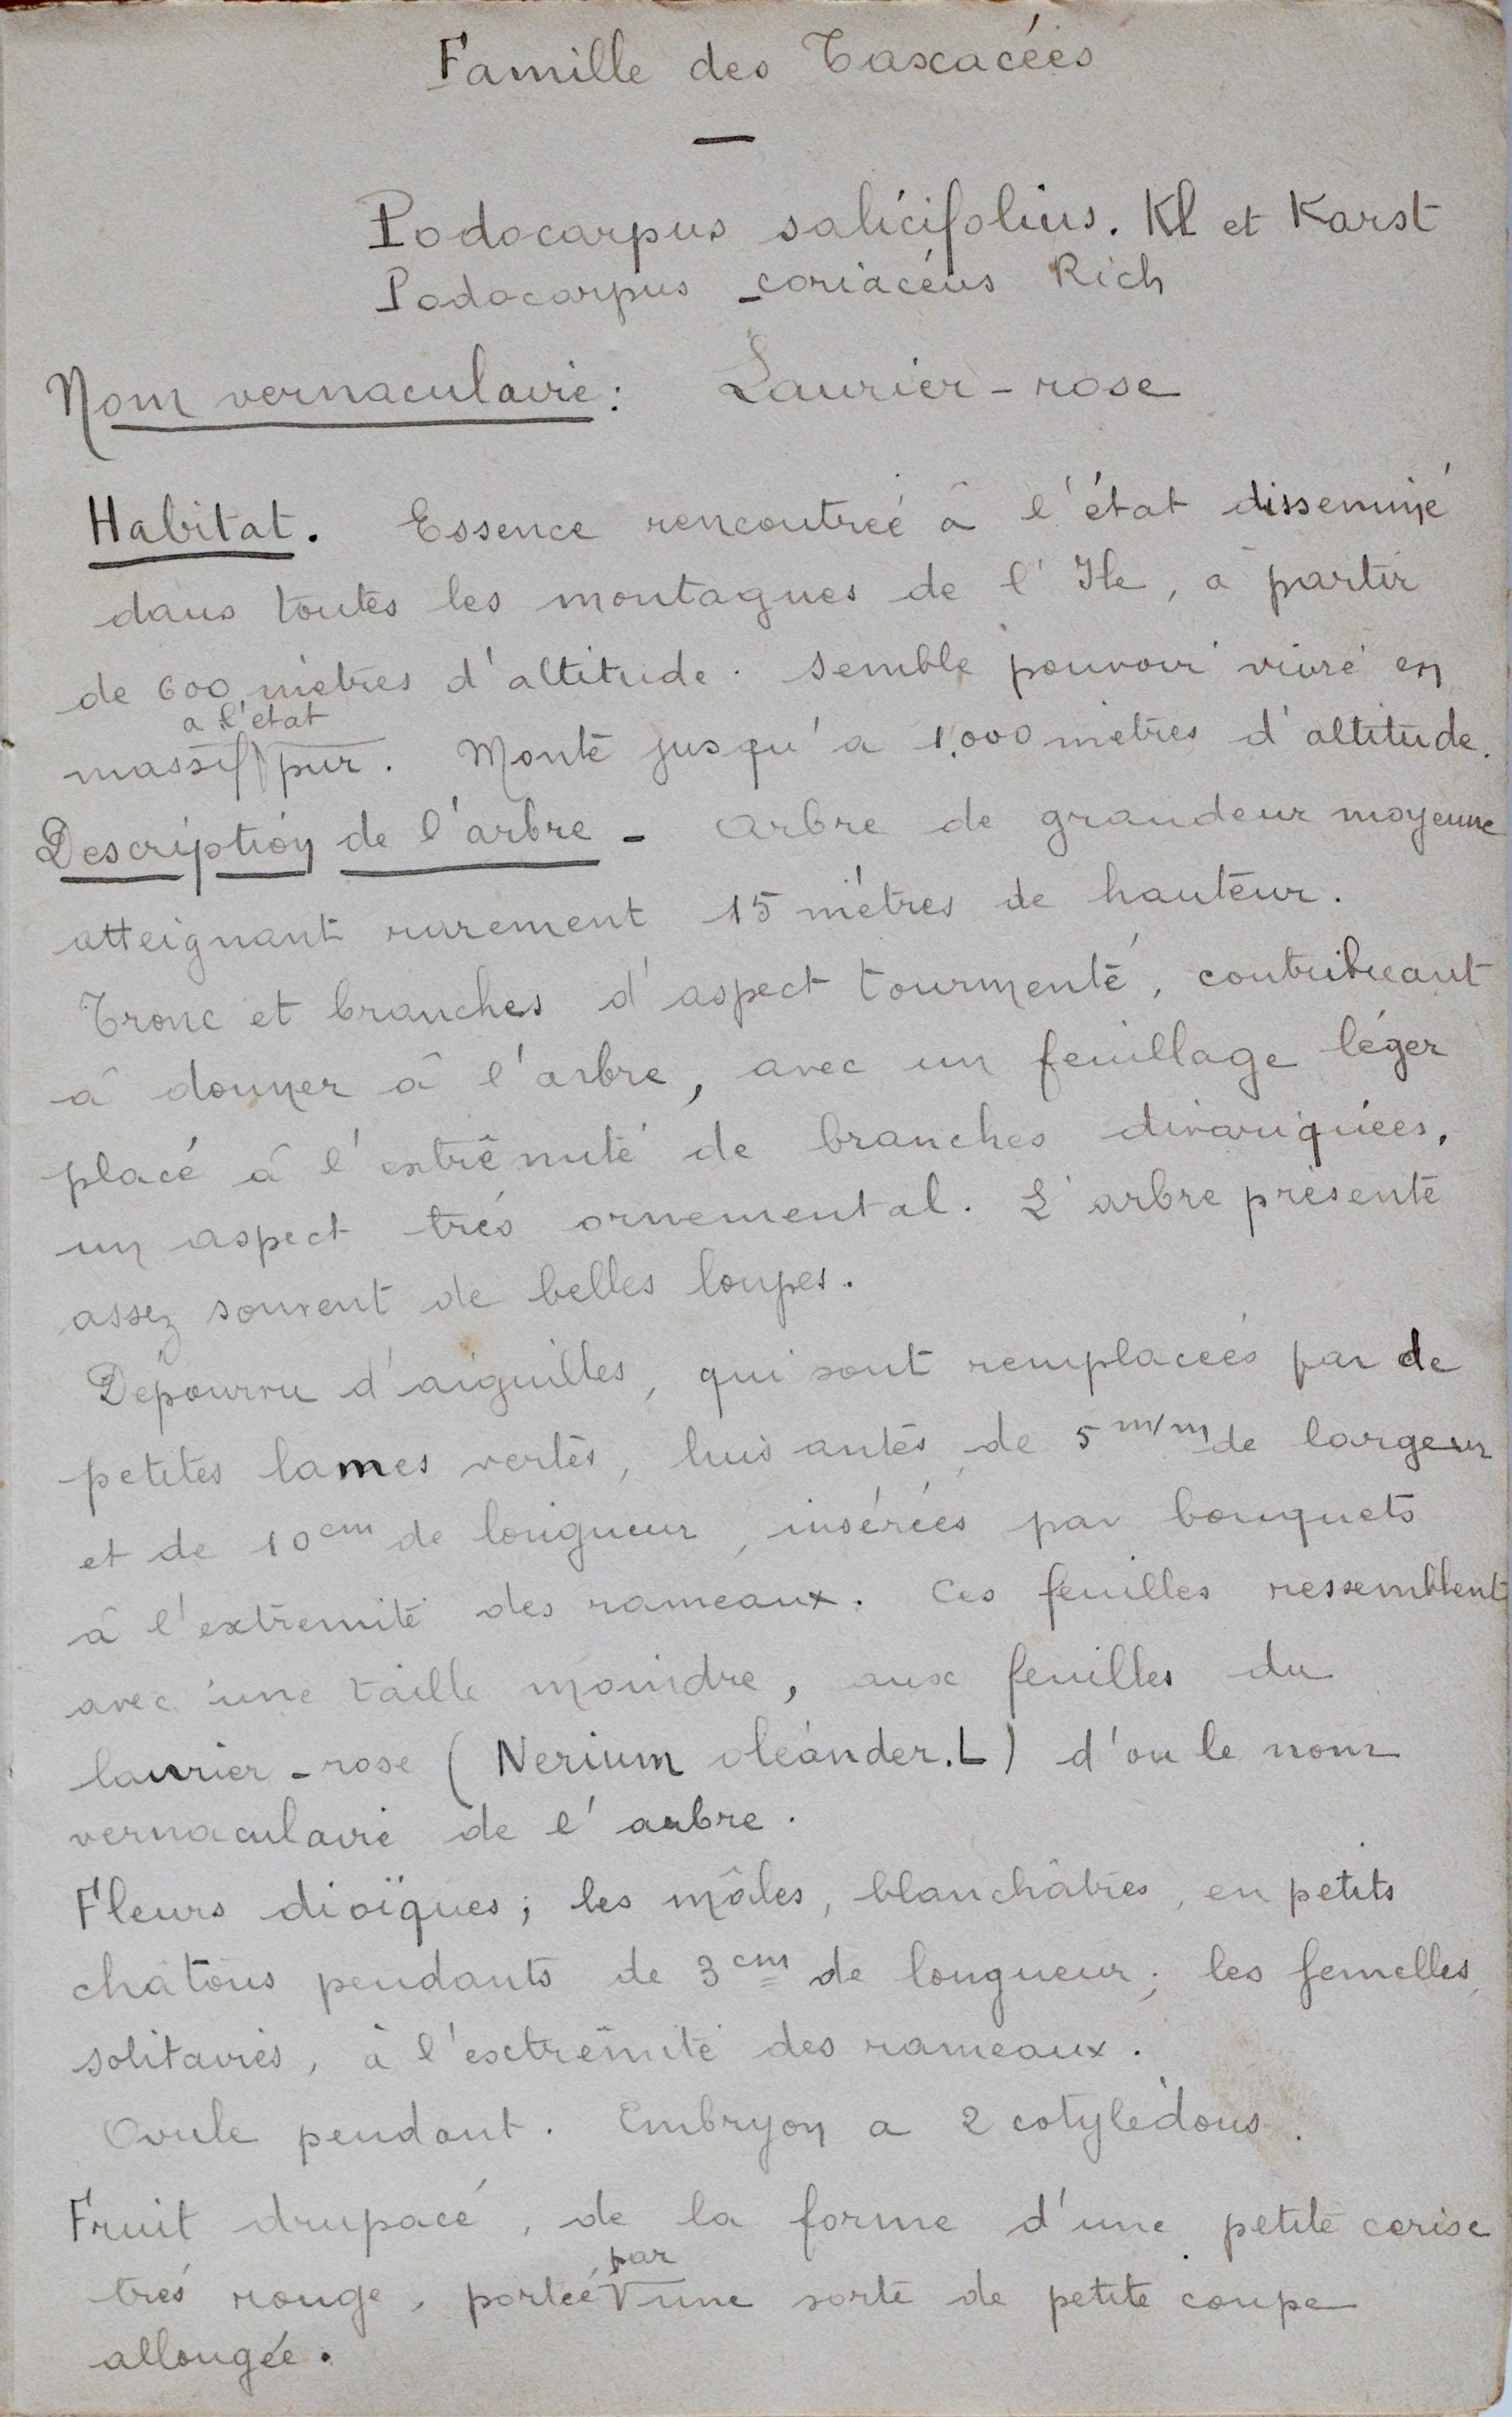 Famille des Taxacées
—
Podocarpus salicifolius. Kl et Karst
Podocarpus coriacéus Rich
Nom vernaculaire : Laurier-rose
Habitat. Essence rencontrée à l'état disseminé
dans toutes les montagnes de l'Ile, à partir
de 600 mètres d'altitude. Semble pouvoir vivre en
a l'état
massif pur. Monte jusqu'a 1.000 mètres d'altitude.
Description de l'arbre - Arbre de grandeur moyenne
atteignant rarement 15 mètres de hauteur.
Tronc et branches d'aspect tourmenté, contribuant
à donner à l'arbre, avec un feuillage léger
placé à l'extrêmité de branches divariquées,
un aspect très ornemental. L'arbre présente
assez souvent de belles loupes.
Dépourvu d'aiguilles, qui sont remplacées par de
petites lames vertes, luisantes, de 5 m/m de largeur
et de 10 cm de longueur, insérées par bouquets
à l'extremité des rameaux. Ces feuilles ressemblent
avec une taille moindre, aux feuilles du
laurier-rose (Nerium oléander.L) d'ou le nom
vernaculaire de l'arbre.
Fleurs dioïques; les mâles, blanchâtres, en petits
chatons pendants de 3 cm de longueur; les femelles,
solitaires, à l'extrêmité des rameaux.
Ovule pendant. Embryon a 2 cotylédons.
Fruit drupacé, de la forme d'une petite cerise
par
très rouge, portée une sorte de petite coupe
allongée.